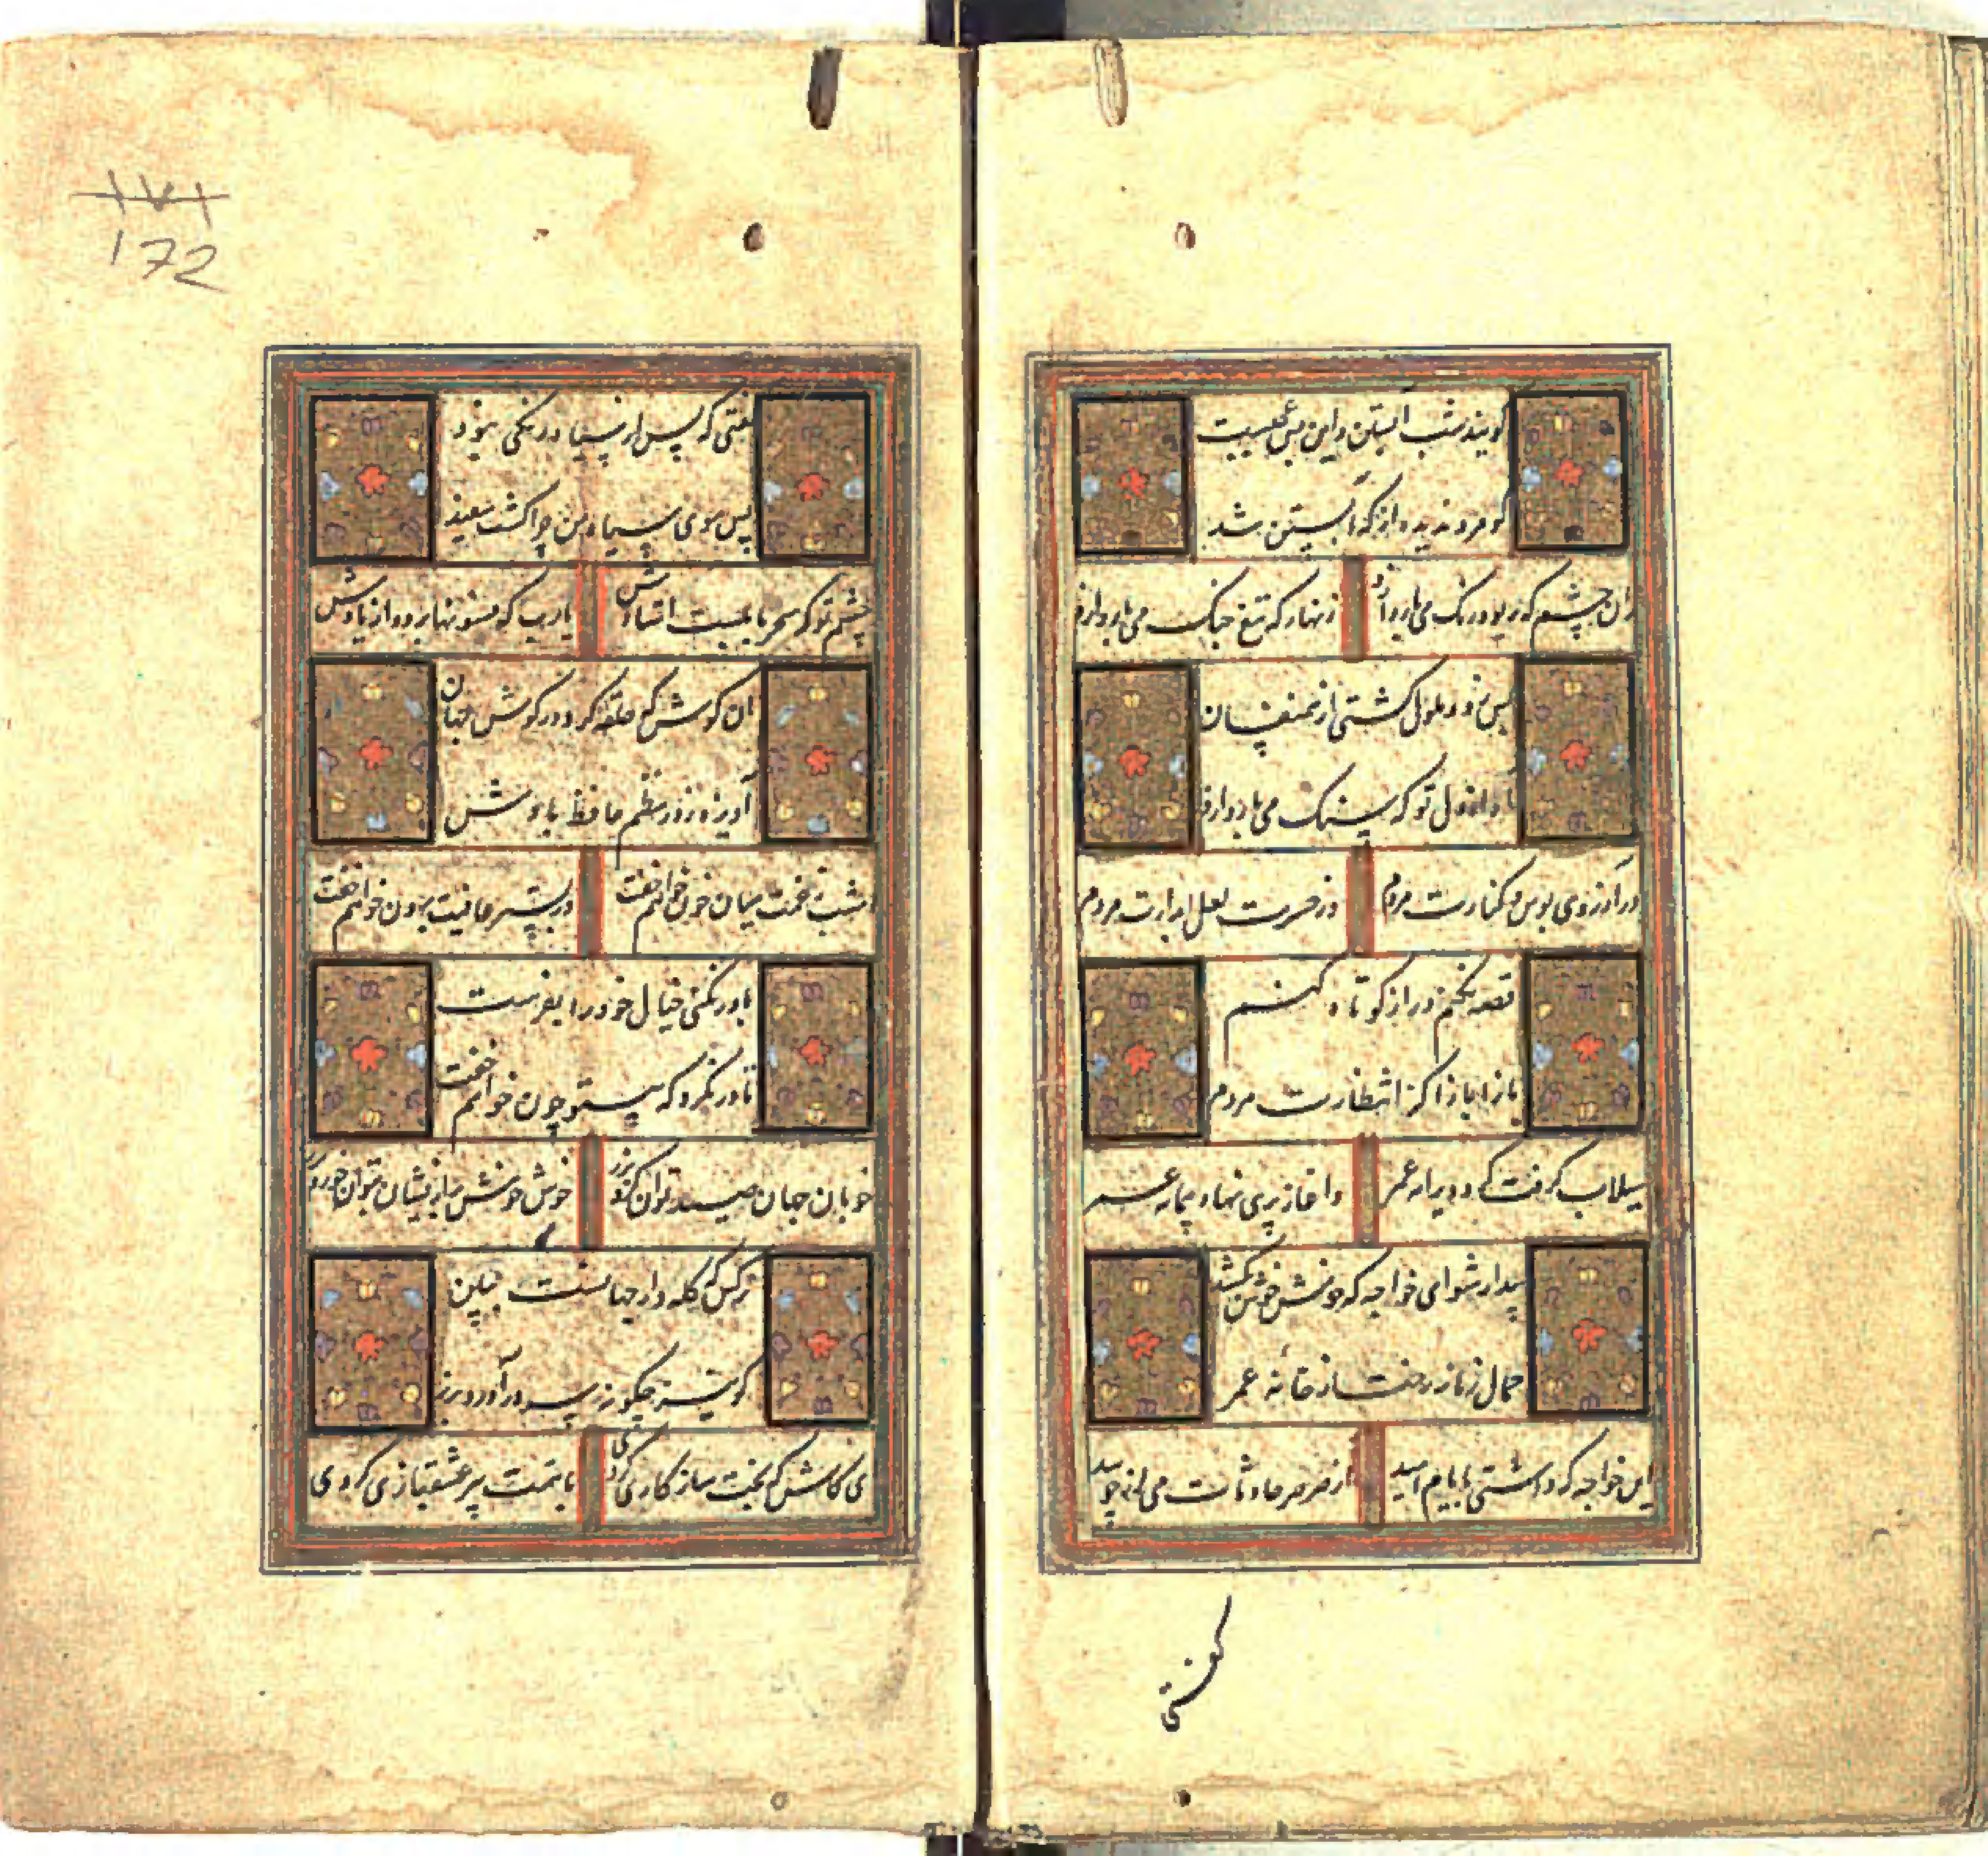 کویند شب آبستن و این بس عجبیست
کو مرد ندیده از که آبستن شد
زان چشم که ریو و رنگ می بارد ازو
زنهار که تیغ جنگ می بارد ازو
بس زود ملول گشتی از همنفسان
آه از دل تو که سنگ می بارد ازو
در آرزوی بوس و کنارت مردم
وز حسرت لعل آبدارت مردم
قصه نکنم دراز کوتاه کنم
بازا بازا کز انتظارت مردم
سیلاب گرفت گرد ویرانه عمر
واغاز پری نهاد پیمانه عمر
بیدار شو ای خواجه که خوش خوش بکشد
حمال زمانه رخت از خانه عمر
این خواجه که داشتی بایام امید
از صرصر حادثات می
گفتی
گفتی که پس از سیاه رنگی نبود
پس موی سیاه من چرا گشت سفید
چشم تو که سحر بابلست استادش
یارب که فسونها برود از یادش
آن گوش که حلقه کرد در گوش جهان
آویزه ز در نظم حافظ بادش
امشب ز غمت میان خون خواهم خفت
وز بستر عافیت برون خواهم خفت
باور نکنی خیال خود را بفرست
تا در نگرد که بیتو چون خواهم خفت
خوبان جهان صید توان کرد بزر
خوش خوش بر ازیشان بتوان خورد بزر
نرگس که کله دار جهانست ببین
کو نیز چگونه سر درآورد بزر
ای کاش که بخت سازگاری کردی
با همت پیر عشقبازی کردی
172